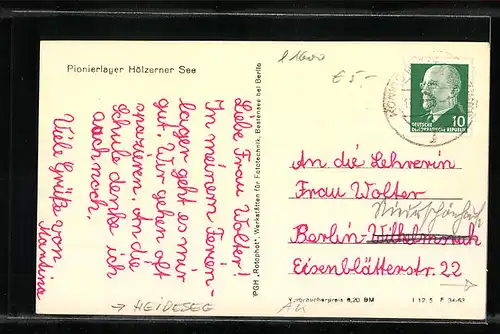 Pionierlager Hölzerner See
Liebe Frau Wolter!
In meinem Ferien-
lager geht es mir
gut. Wir gehen oft
spazieren. An die
Schule denke ich
auch noch.
Viele Grüße von
Martina
PGH „Rotophot", Werkstätten für Fototechnik, Bestensee bei Berlin
l 1600
€ 5,-
DEUTSCHE
DEMOKRATISCHE REPUBLIK
10
An die Lehrerin
Frau Wolter
Berlin-Wilhelmsruh
Eisenblätterstr. 22
Verbraucherpreis 0,20 BM
→ HEIDESEG